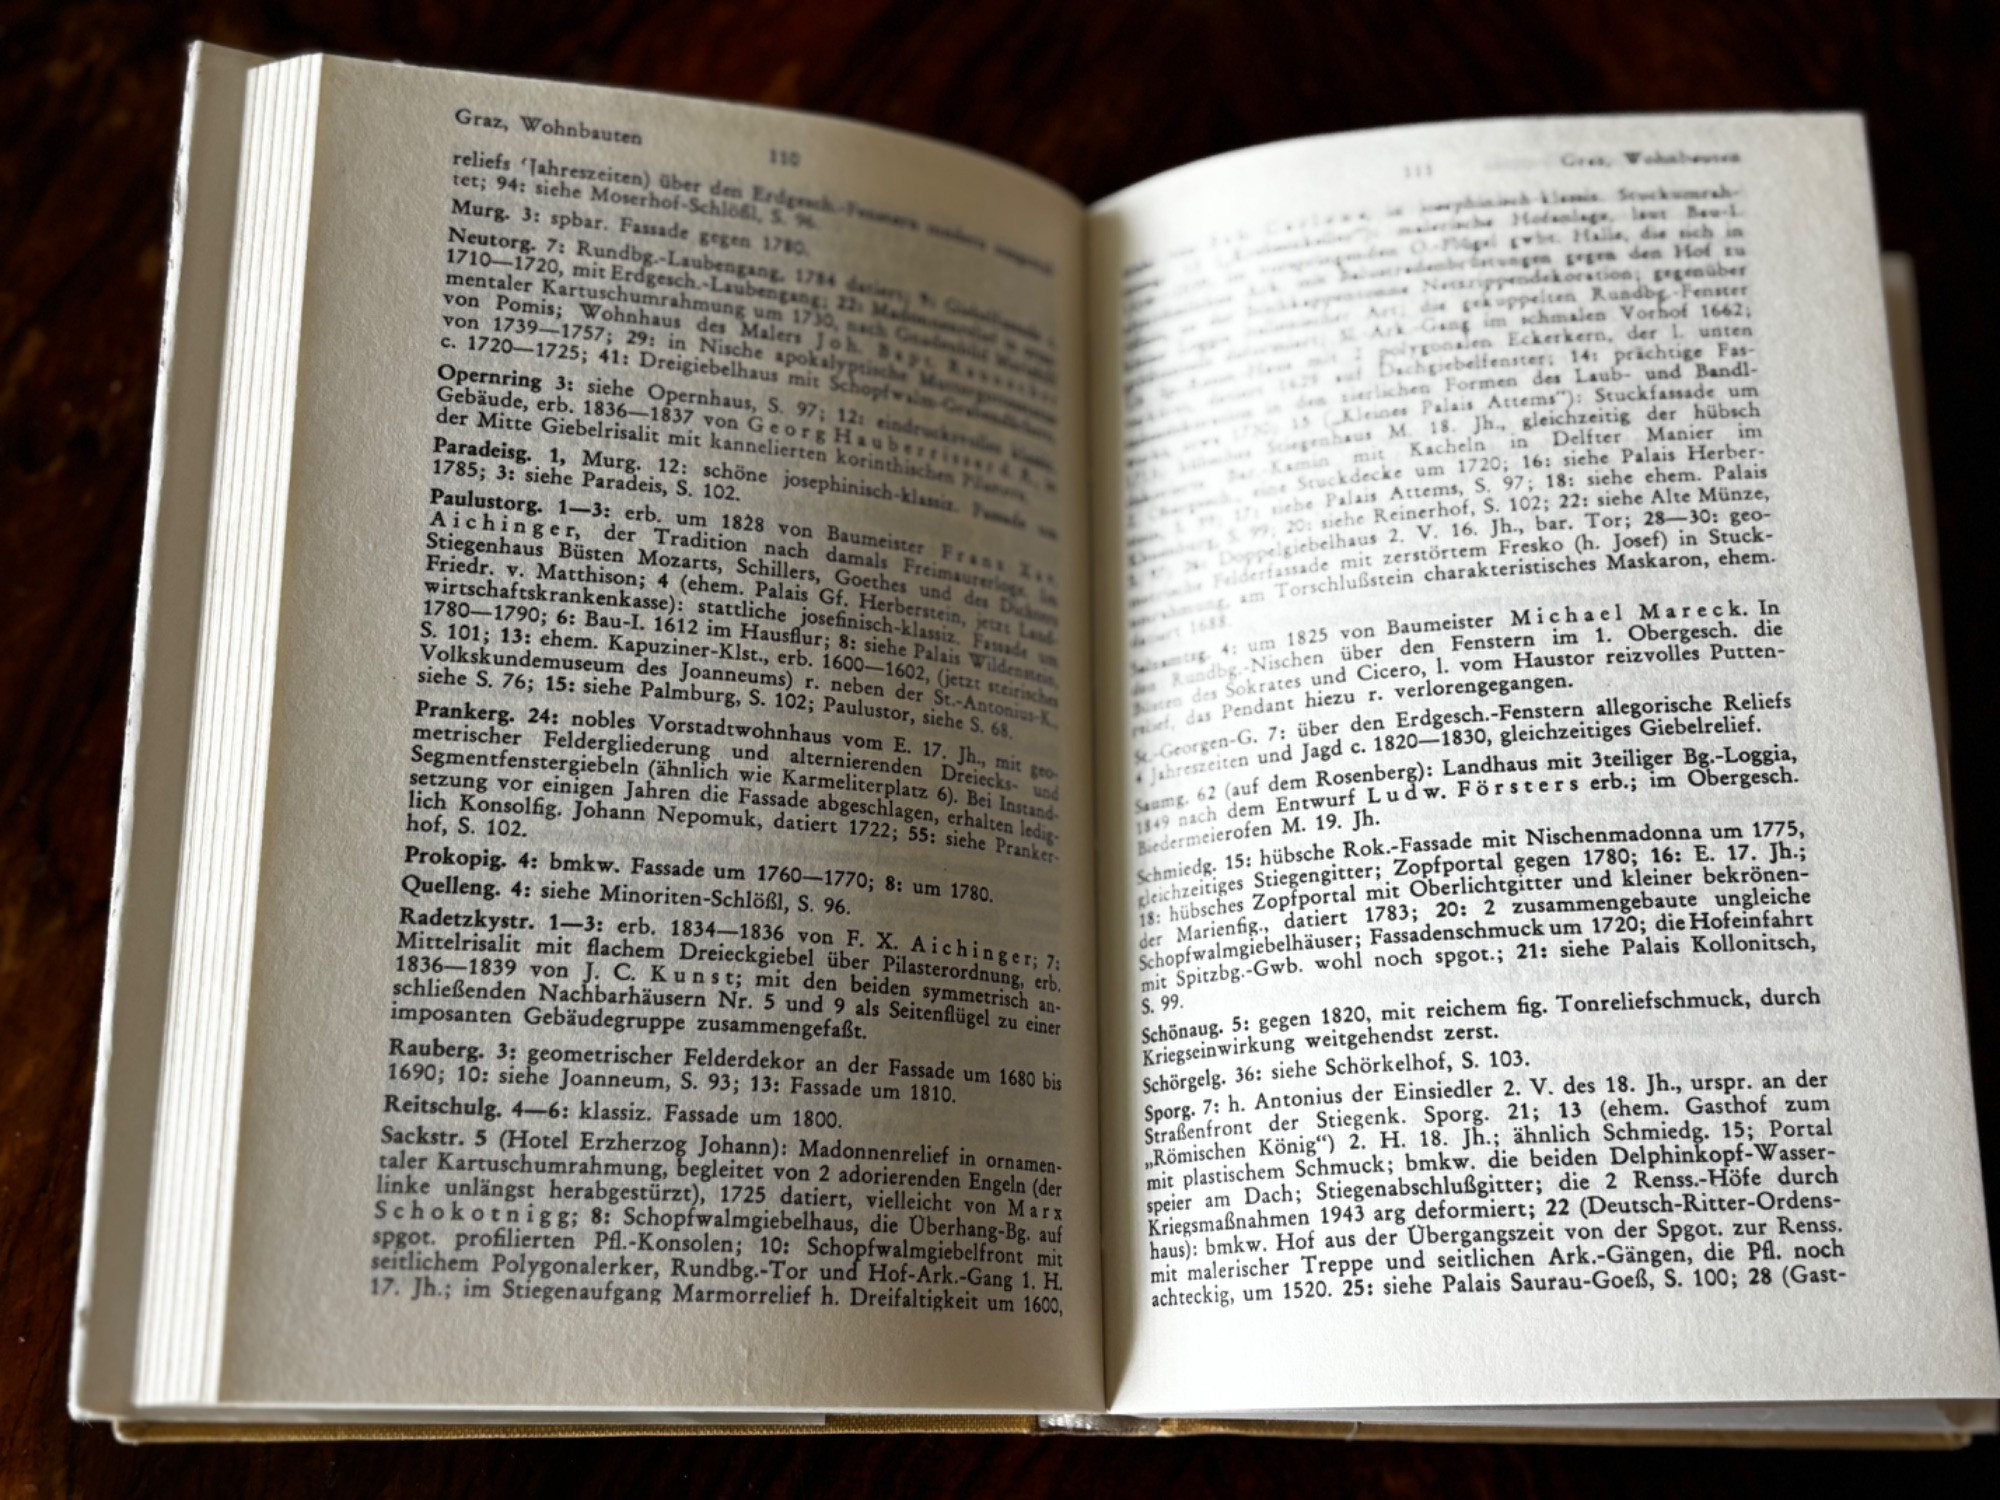 Graz, Wohnbauten
110
reliefs (Jahreszeiten) über den Erdgesch.-Fenstern
tet; 94: siehe Moserhof-Schlößl, S. 96.
Murg. 3: spbar. Fassade gegen 1780.
Neutorg. 7: Rundbg.-Laubengang, 1784 datiert; 9:
1710—1720, mit Erdgesch.-Laubengang; 22: Madonnenrelief in
mentaler Kartuschumrahmung um 1730, nach Gnadenbild
von Pomis; Wohnhaus des Malers Joh. Bapt.
von 1739—1757; 29: in Nische apokalyptische
c. 1720—1725; 41: Dreigiebelhaus mit Schopfwalm-
Opernring 3: siehe Opernhaus, S. 97; 12: eindrucksvolles klassiz.
Gebäude, erb. 1836—1837 von Georg Hauberrisser d. Ä., in
der Mitte Giebelrisalit mit kannelierten korinthischen Pilastern.
Paradeisg. 1, Murg. 12: schöne josephinisch-klassiz. Fassade um
1785; 3: siehe Paradeis, S. 102.
Paulustorg. 1—3: erb. um 1828 von Baumeister Franz Xav.
Aichinger, der Tradition nach damals Freimaurerloge. Im
Stiegenhaus Büsten Mozarts, Schillers, Goethes und des Dichters
Friedr. v. Matthison; 4 (ehem. Palais Gf. Herberstein, jetzt Land-
wirtschaftskrankenkasse): stattliche josefinisch-klassiz. Fassade um
1780—1790; 6: Bau-I. 1612 im Hausflur; 8: siehe Palais Wildenstein,
S. 101; 13: ehem. Kapuziner-Klst., erb. 1600—1602, (jetzt steirisches
Volkskundemuseum des Joanneums) r. neben der St.-Antonius-K.,
siehe S. 76; 15: siehe Palmburg, S. 102; Paulustor, siehe S. 68.
Prankerg. 24: nobles Vorstadtwohnhaus vom E. 17. Jh., mit geo-
metrischer Feldergliederung und alternierenden Dreiecks- und
Segmentfenstergiebeln (ähnlich wie Karmeliterplatz 6). Bei Instand-
setzung vor einigen Jahren die Fassade abgeschlagen, erhalten ledig-
lich Konsolfig. Johann Nepomuk, datiert 1722; 55: siehe Pranker-
hof, S. 102.
Prokopig. 4: bmkw. Fassade um 1760—1770; 8: um 1780.
Quelleng. 4: siehe Minoriten-Schlößl, S. 96.
Radetzkystr. 1—3: erb. 1834—1836 von F. X. Aichinger; 7:
Mittelrisalit mit flachem Dreieckgiebel über Pilasterordnung, erb.
1836—1839 von J. C. Kunst; mit den beiden symmetrisch an-
schließenden Nachbarhäusern Nr. 5 und 9 als Seitenflügel zu einer
imposanten Gebäudegruppe zusammengefaßt.
Rauberg. 3: geometrischer Felderdekor an der Fassade um 1680 bis
1690; 10: siehe Joanneum, S. 93; 13: Fassade um 1810.
Reitschulg. 4—6: klassiz. Fassade um 1800.
Sackstr. 5 (Hotel Erzherzog Johann): Madonnenrelief in ornamen-
taler Kartuschumrahmung, begleitet von 2 adorierenden Engeln (der
linke unlängst herabgestürzt), 1725 datiert, vielleicht von Marx
Schokotnigg; 8: Schopfwalmgiebelhaus, die Überhang-Bg. auf
spgot. profilierten Pfl.-Konsolen; 10: Schopfwalmgiebelfront mit
seitlichem Polygonalerker, Rundbg.-Tor und Hof-Ark.-Gang 1. H.
17. Jh.; im Stiegenaufgang Marmorrelief h. Dreifaltigkeit um 1600,
111
Graz, Wohnbauten
josephinisch-klassiz. Stuckumrah-
malerische Hofanlage, laut Bau-I.
O.-Flügel gwbt. Halle, die sich in
gegen den Hof zu
Netzrippendekoration; gegenüber
Art; die gekuppelten Rundbg.-Fenster
Ark.-Gang im schmalen Vorhof 1662;
2 polygonalen Eckerkern, der l. unten
1629 auf Dachgiebelfenster; 14: prächtige Fas-
den zierlichen Formen des Laub- und Bandl-
15 („Kleines Palais Attems“): Stuckfassade um
Stiegenhaus M. 18. Jh., gleichzeitig der hübsch
Kamin mit Kacheln in Delfter Manier im
eine Stuckdecke um 1720; 16: siehe Palais Herber-
17: siehe Palais Attems, S. 97; 18: siehe ehem. Palais
S. 99; 20: siehe Reinerhof, S. 102; 22: siehe Alte Münze,
Doppelgiebelhaus 2. V. 16. Jh., bar. Tor; 28—30: geo-
metrische Felderfassade mit zerstörtem Fresko (h. Josef) in Stuck-
umrahmung, am Torschlußstein charakteristisches Maskaron, ehem.
datiert 1688.
Salzamtsg. 4: um 1825 von Baumeister Michael Mareck. In
den Rundbg.-Nischen über den Fenstern im 1. Obergesch. die
Büsten des Sokrates und Cicero, l. vom Haustor reizvolles Putten-
relief, das Pendant hiezu r. verlorengegangen.
St.-Georgen-G. 7: über den Erdgesch.-Fenstern allegorische Reliefs
4 Jahreszeiten und Jagd c. 1820—1830, gleichzeitiges Giebelrelief.
Saumg. 62 (auf dem Rosenberg): Landhaus mit 3teiliger Bg.-Loggia,
1849 nach dem Entwurf Ludw. Försters erb.; im Obergesch.
Biedermeierofen M. 19. Jh.
Schmiedg. 15: hübsche Rok.-Fassade mit Nischenmadonna um 1775,
gleichzeitiges Stiegengitter; Zopfportal gegen 1780; 16: E. 17. Jh.;
18: hübsches Zopfportal mit Oberlichtgitter und kleiner bekrönen-
der Marienfig., datiert 1783; 20: 2 zusammengebaute ungleiche
Schopfwalmgiebelhäuser; Fassadenschmuck um 1720; die Hofeinfahrt
mit Spitzbg.-Gwb. wohl noch spgot.; 21: siehe Palais Kollonitsch,
S. 99.
Schönaug. 5: gegen 1820, mit reichem fig. Tonreliefschmuck, durch
Kriegseinwirkung weitgehendst zerst.
Schörgelg. 36: siehe Schörkelhof, S. 103.
Sporg. 7: h. Antonius der Einsiedler 2. V. des 18. Jh., urspr. an der
Straßenfront der Stiegenk. Sporg. 21; 13 (ehem. Gasthof zum
„Römischen König“) 2. H. 18. Jh.; ähnlich Schmiedg. 15; Portal
mit plastischem Schmuck; bmkw. die beiden Delphinkopf-Wasser-
speier am Dach; Stiegenabschlußgitter; die 2 Renss.-Höfe durch
Kriegsmaßnahmen 1943 arg deformiert; 22 (Deutsch-Ritter-Ordens-
haus): bmkw. Hof aus der Übergangszeit von der Spgot. zur Renss.
mit malerischer Treppe und seitlichen Ark.-Gängen, die Pfl. noch
achteckig, um 1520. 25: siehe Palais Saurau-Goeß, S. 100; 28 (Gast-